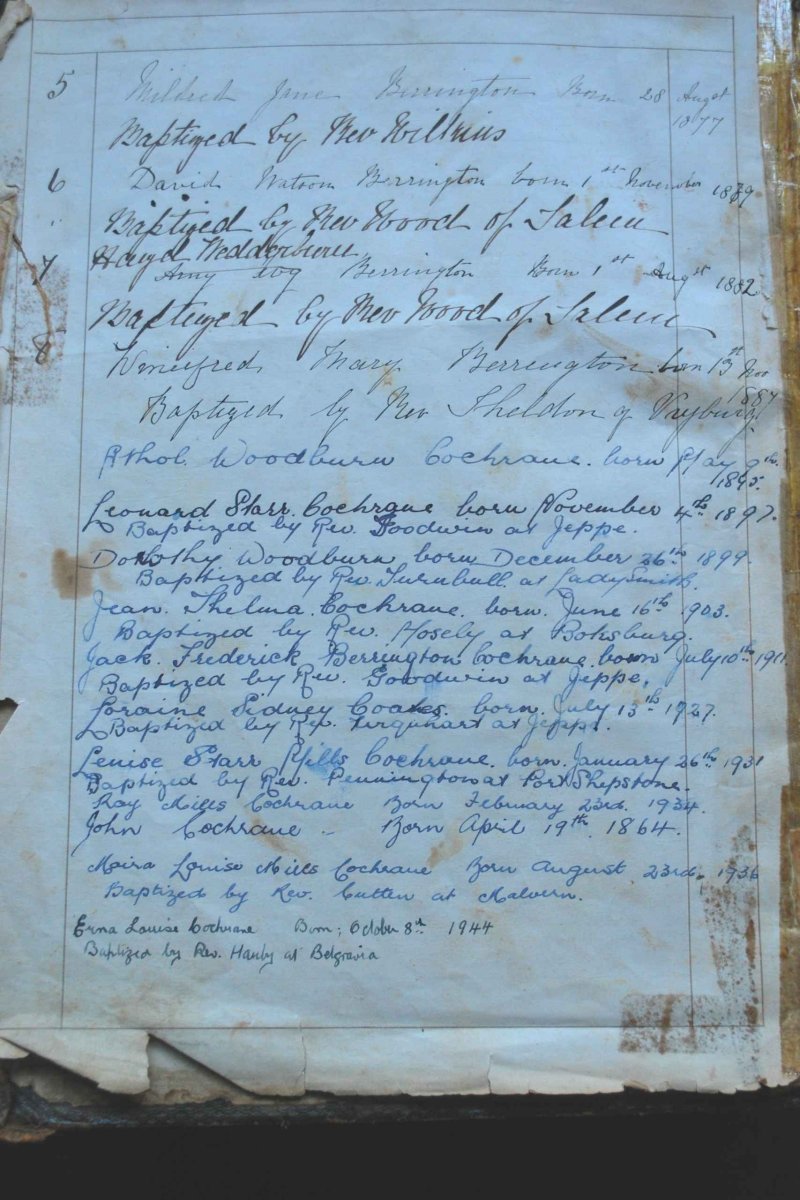 5 Mildred Jane Berrington Born 28 Augst 1877
Baptized by Rev Wilkins
6 David Watson Berrington born 1st November 1879
Baptized by Rev Wood of Salem
Wedderburn
7 Amy Berrington Born 1st Augst 1882
Baptized by Rev Wood of Salem
8 Winifred Mary Berrington born 13st Nov 1887
Baptized by Rev Sheldon of Vryburg
Athol. Woodburn Cochrane. born May 9th. 1895.
Leonard Starr. Cochrane born November 4th. 1897.
Baptized by Rev. Goodwin at Jeppe.
Dorothy Woodburn born December 26th 1899.
Baptized by Rev. Turnbull. at Ladysmith.
Jean. Thelma. Cochrane. born. June 16th 1903.
Baptized by Rev. Mosely at Boksburg.
Jack. Frederick Berrington Cochrane. born July 10th 1911.
Baptized by Rev. Goodwin at Jeppe.
Loraine Sidney Coates. born. July 13th 1927.
Baptized by Rev. Urquhart at Jeppe.
Lenise Starr Mills Cochrane. born. January 26th. 1931
Baptized by Rev. Pennington at Port Shepstone.
Ray Mills Cochrane Born February 23rd. 1934.
John Cochrane - Born April 19th 1864.
Moira Louise Mills Cochrane Born August 23rd. 1936
Baptized by Rev. Cutten at Malvern.
Erna Louise Cochrane Born; October 8th 1944
Baptized by Rev. Hanby at Belgravia